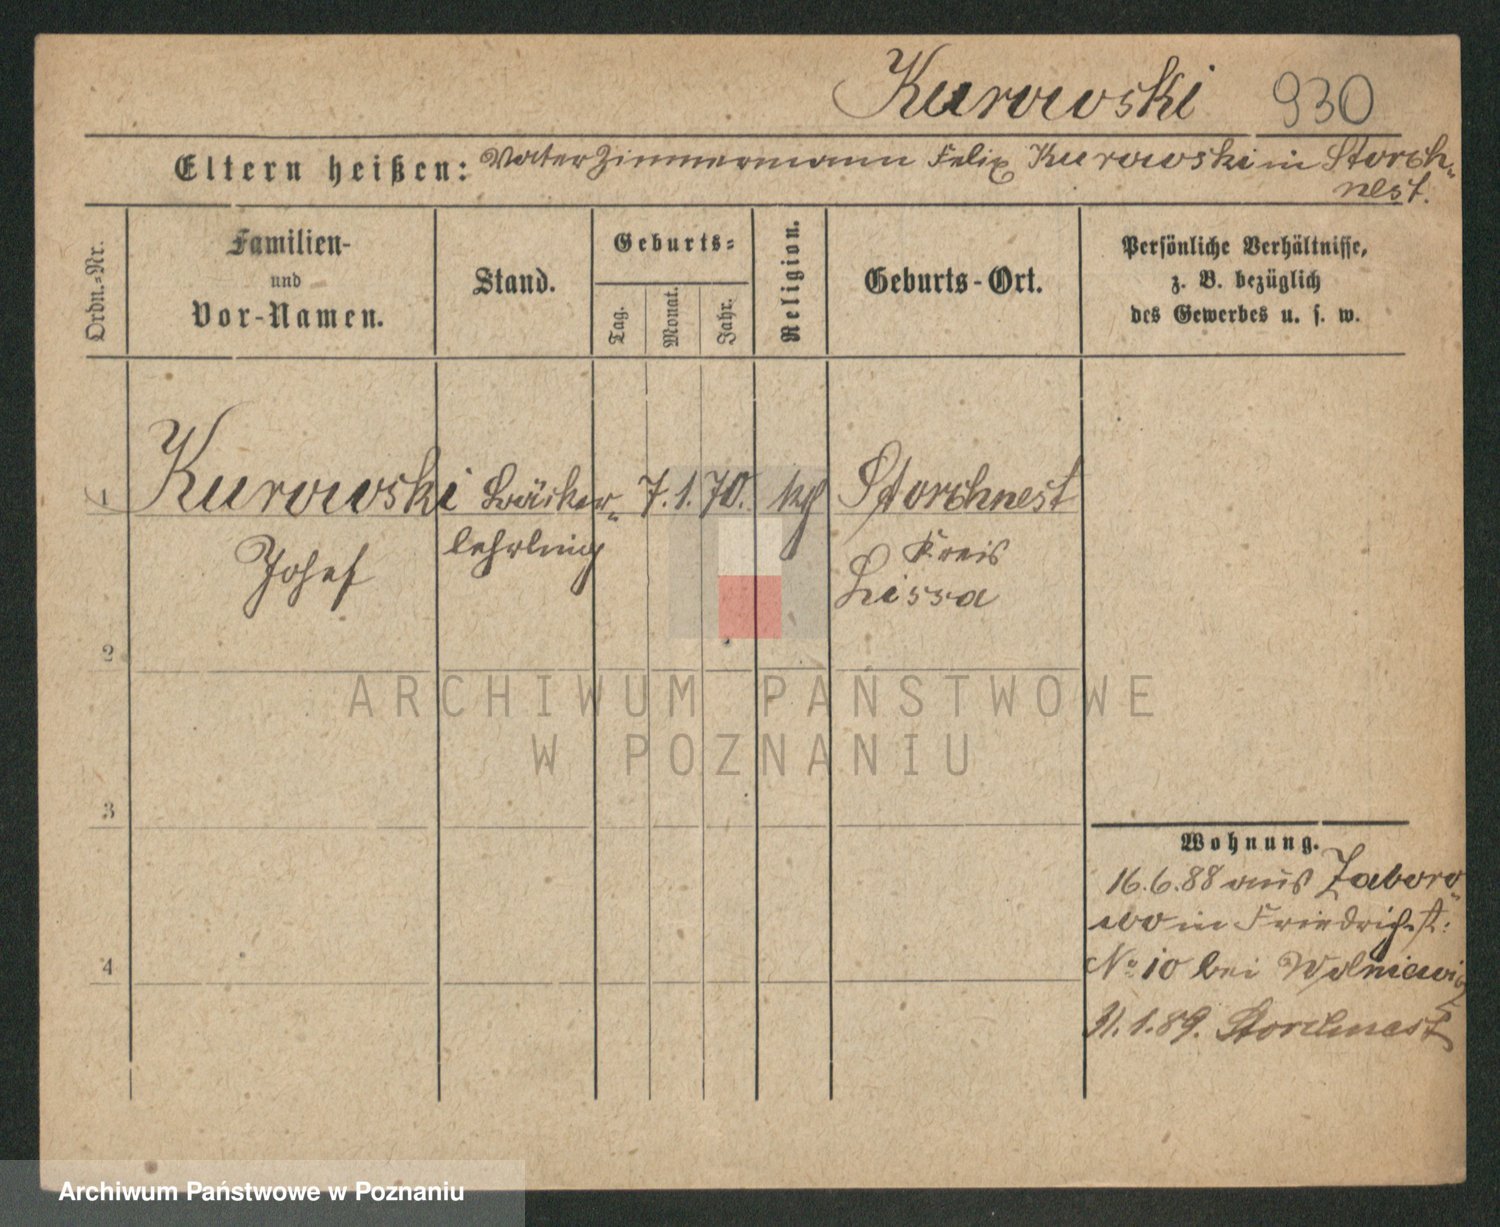 Kurowski 930
Eltern heißen: Vater Zimmermann Felix Kurowski in Storch-
nest.
Ordn.-Nr.
Familien-
und
Vor-Namen.
Stand.
Geburts-
Tag.
Monat.
Jahr.
Religion.
Geburts-Ort.
Persönliche Verhältnisse,
z. B. bezüglich
des Gewerbes u. s. w.
1 Kurowski Bäcker- 7. 1. 70. kg Storchnest
Josef lehrling Kreis
Lissa
2
3
4
Wohnung.
16.6.88 aus Zaboro-
wo in Friedrichst:
No 10 bei Wolniewicz
31.1.89. Storchnest
ARCHIWUM PAŃSTWOWE
W POZNANIU
Archiwum Państwowe w Poznaniu